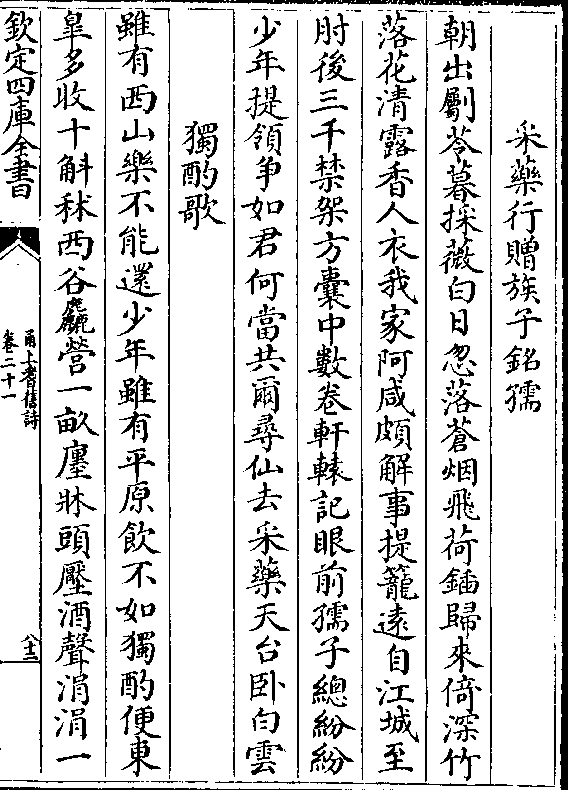 采藥行贈族子銘孺
朝出劚苓暮採薇白日忽落蒼烟飛荷鍤歸來倚深竹
落花清露香人衣我家阿咸頗解事提籠遠自江城至
肘後三千禁架方囊中數卷軒轅記眼前孺子總紛紛
少年提領爭如君何當共爾尋仙去采藥天台卧白雲
獨酌歌
雖有西山樂不能還少年雖有平原飲不如獨酌便東
皐多收十斛秫西谷麤營一畝廛牀頭壓酒聲涓涓一
欽定四庫全書
甬上耆舊詩
卷二十一